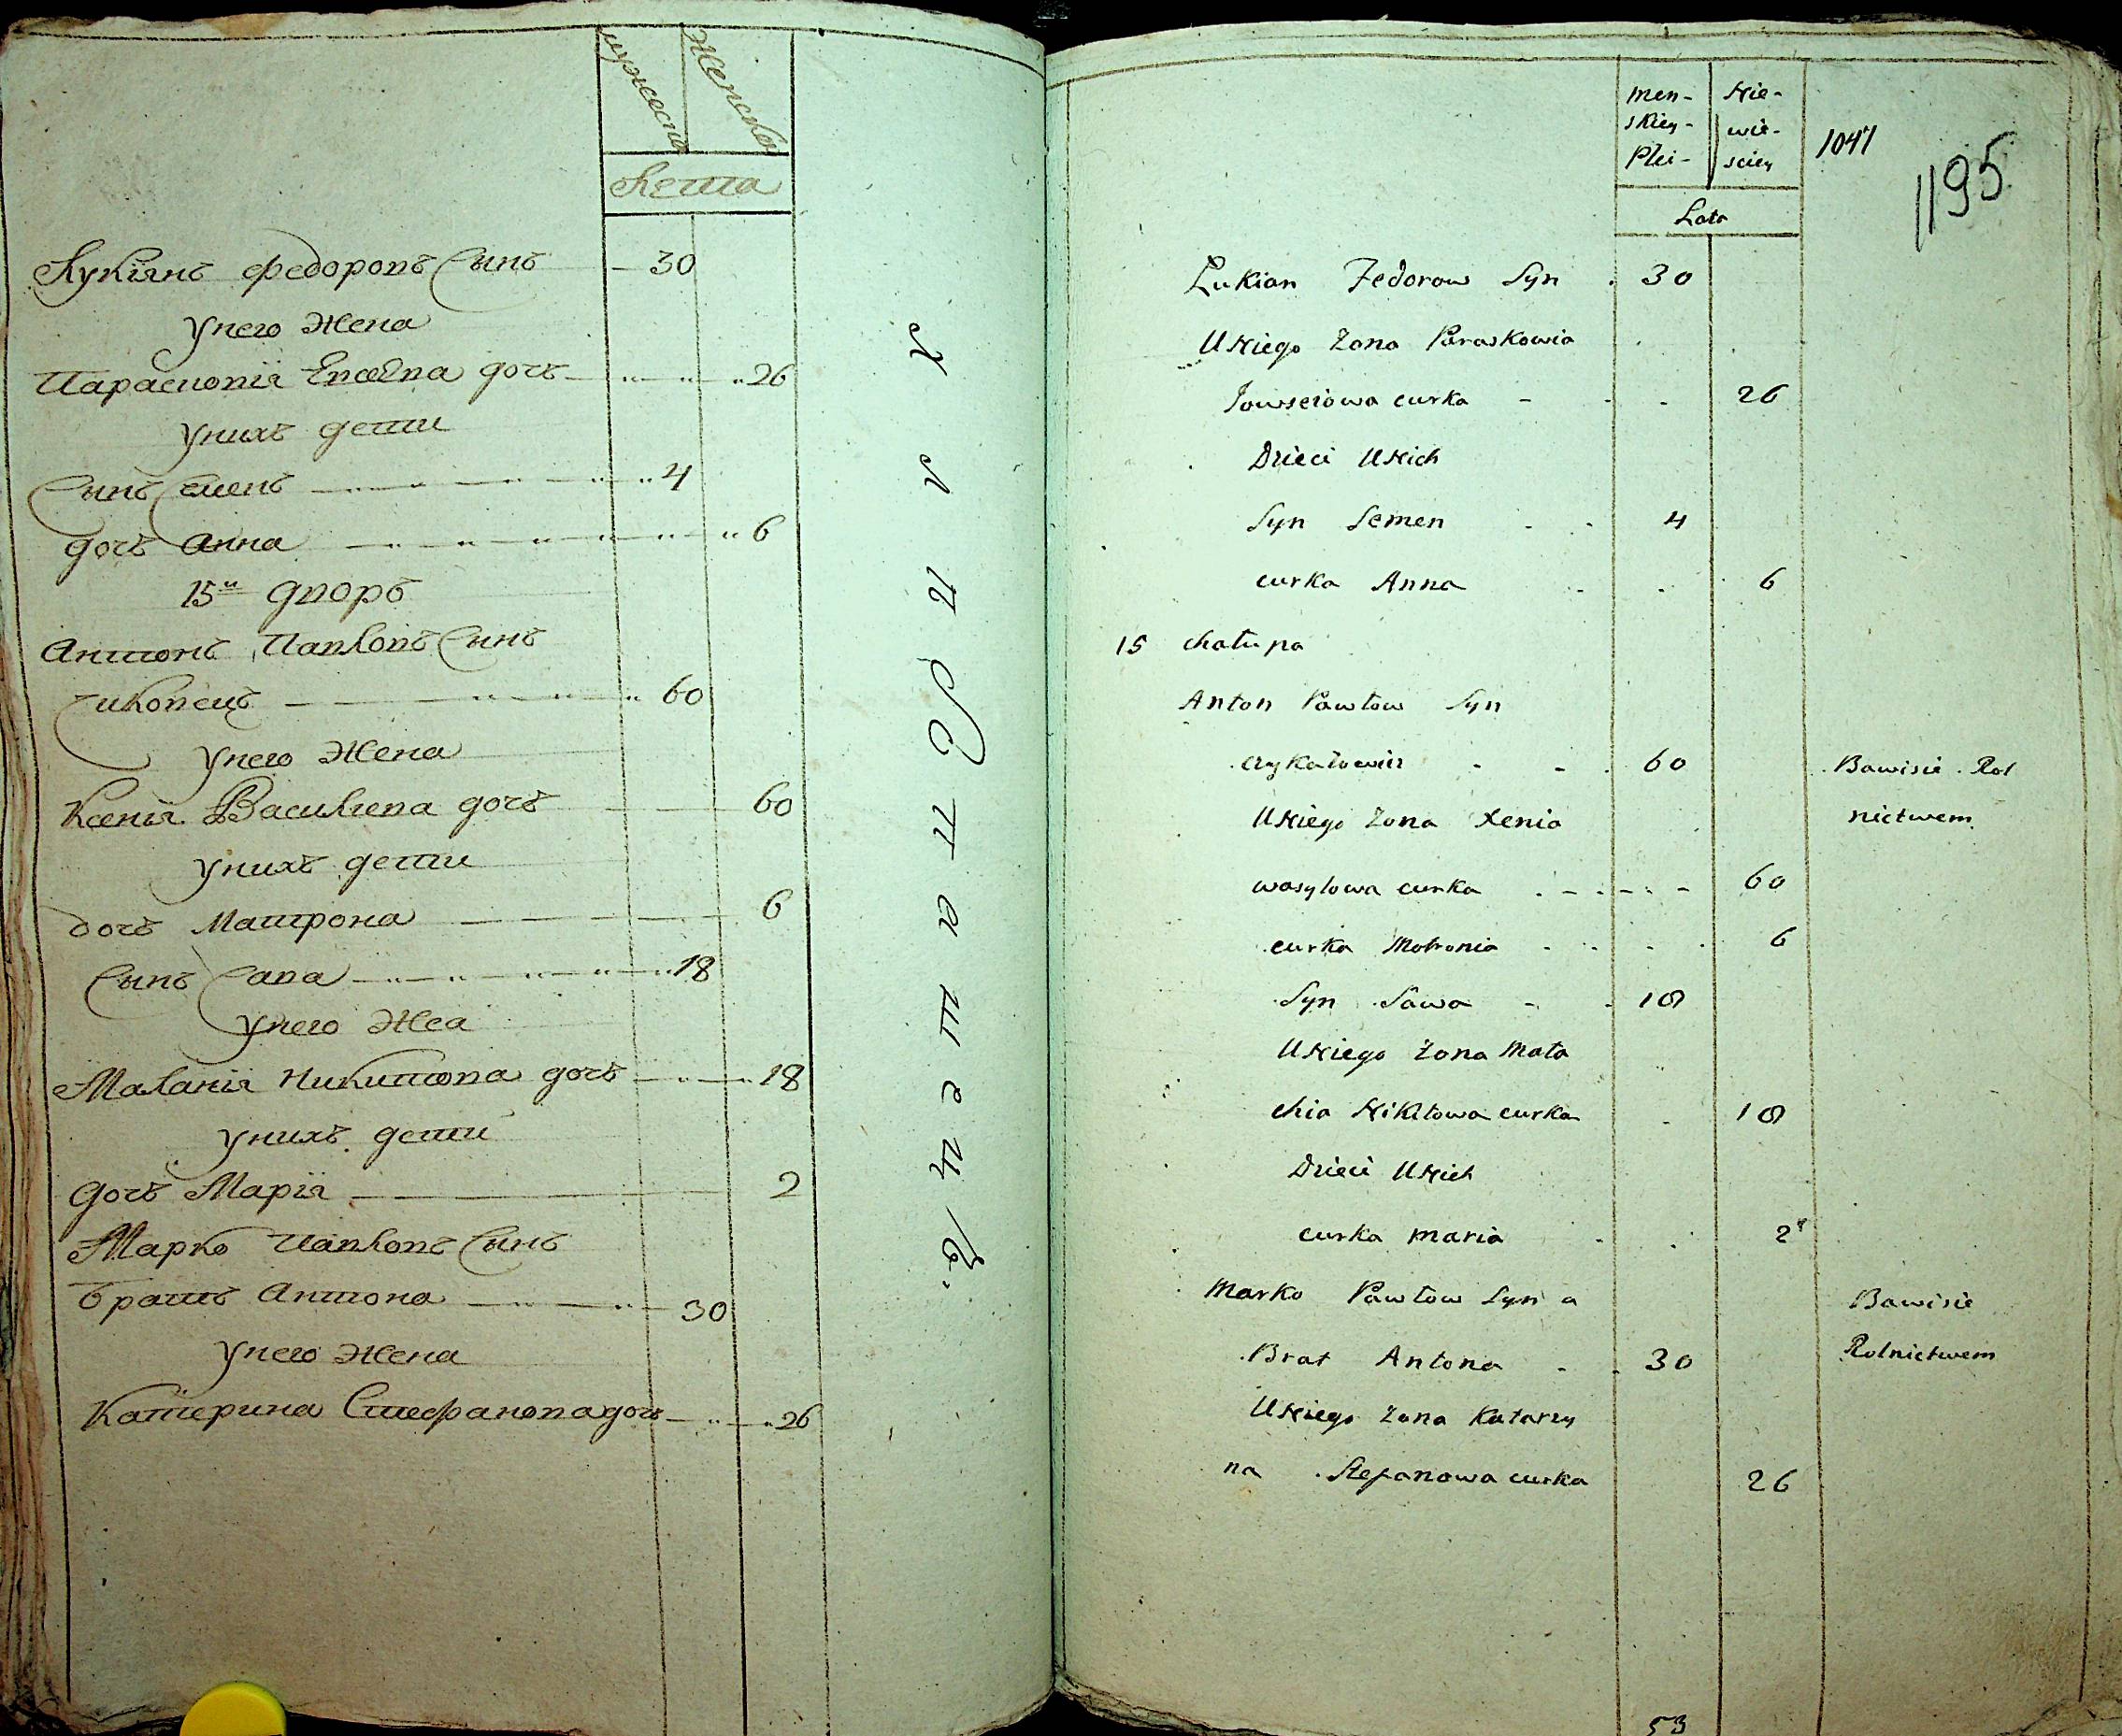 мужеска
Женска
Лета
Лукіянъ Федоровъ Сынъ 30
Унего жена
Парасковія Евсѣева дочь 26
Унихъ дети
Сынъ Семенъ 4
дочь Анна 6
15й дворъ
Антонъ Павловъ Сынъ
60
Унего жена
Ксенія Василиева дочь 60
Унихъ дети
дочь Матрона 6
Сынъ Сава 18
Унего жеа
Маланія Никитова дочь 18
Унихъ дети
дочь Марія 2
Марко Павловъ Сынъ
братъ Антона 30
Унего жена
Катерина Стефанова дочь 26
men- Nie-
skiey- wie-
Płci- sciey
1047
1195
Lata
Łukian Fedorow Syn 30
U Niego Żona Paraskowia
Jowseiowa curka 26
Dzieci U Nich
Syn Semen 4
curka Anna 6
15 chałupa
Anton Pawłow Syn
60 Bawisie Rol
U Niego Żona Xenia nictwem
wasylowa curka 60
curka Motronia 6
Syn Sawa 18
U Niego Żona Mała
chia Nikitowa curka 18
Dzieci U Nich
curka Maria 2
Marko Pawłow Syn a Bawisie
Brat Antona 30 Rolnictwem
U Niego Żona Katarzy
na Stefanowa curka 26
53